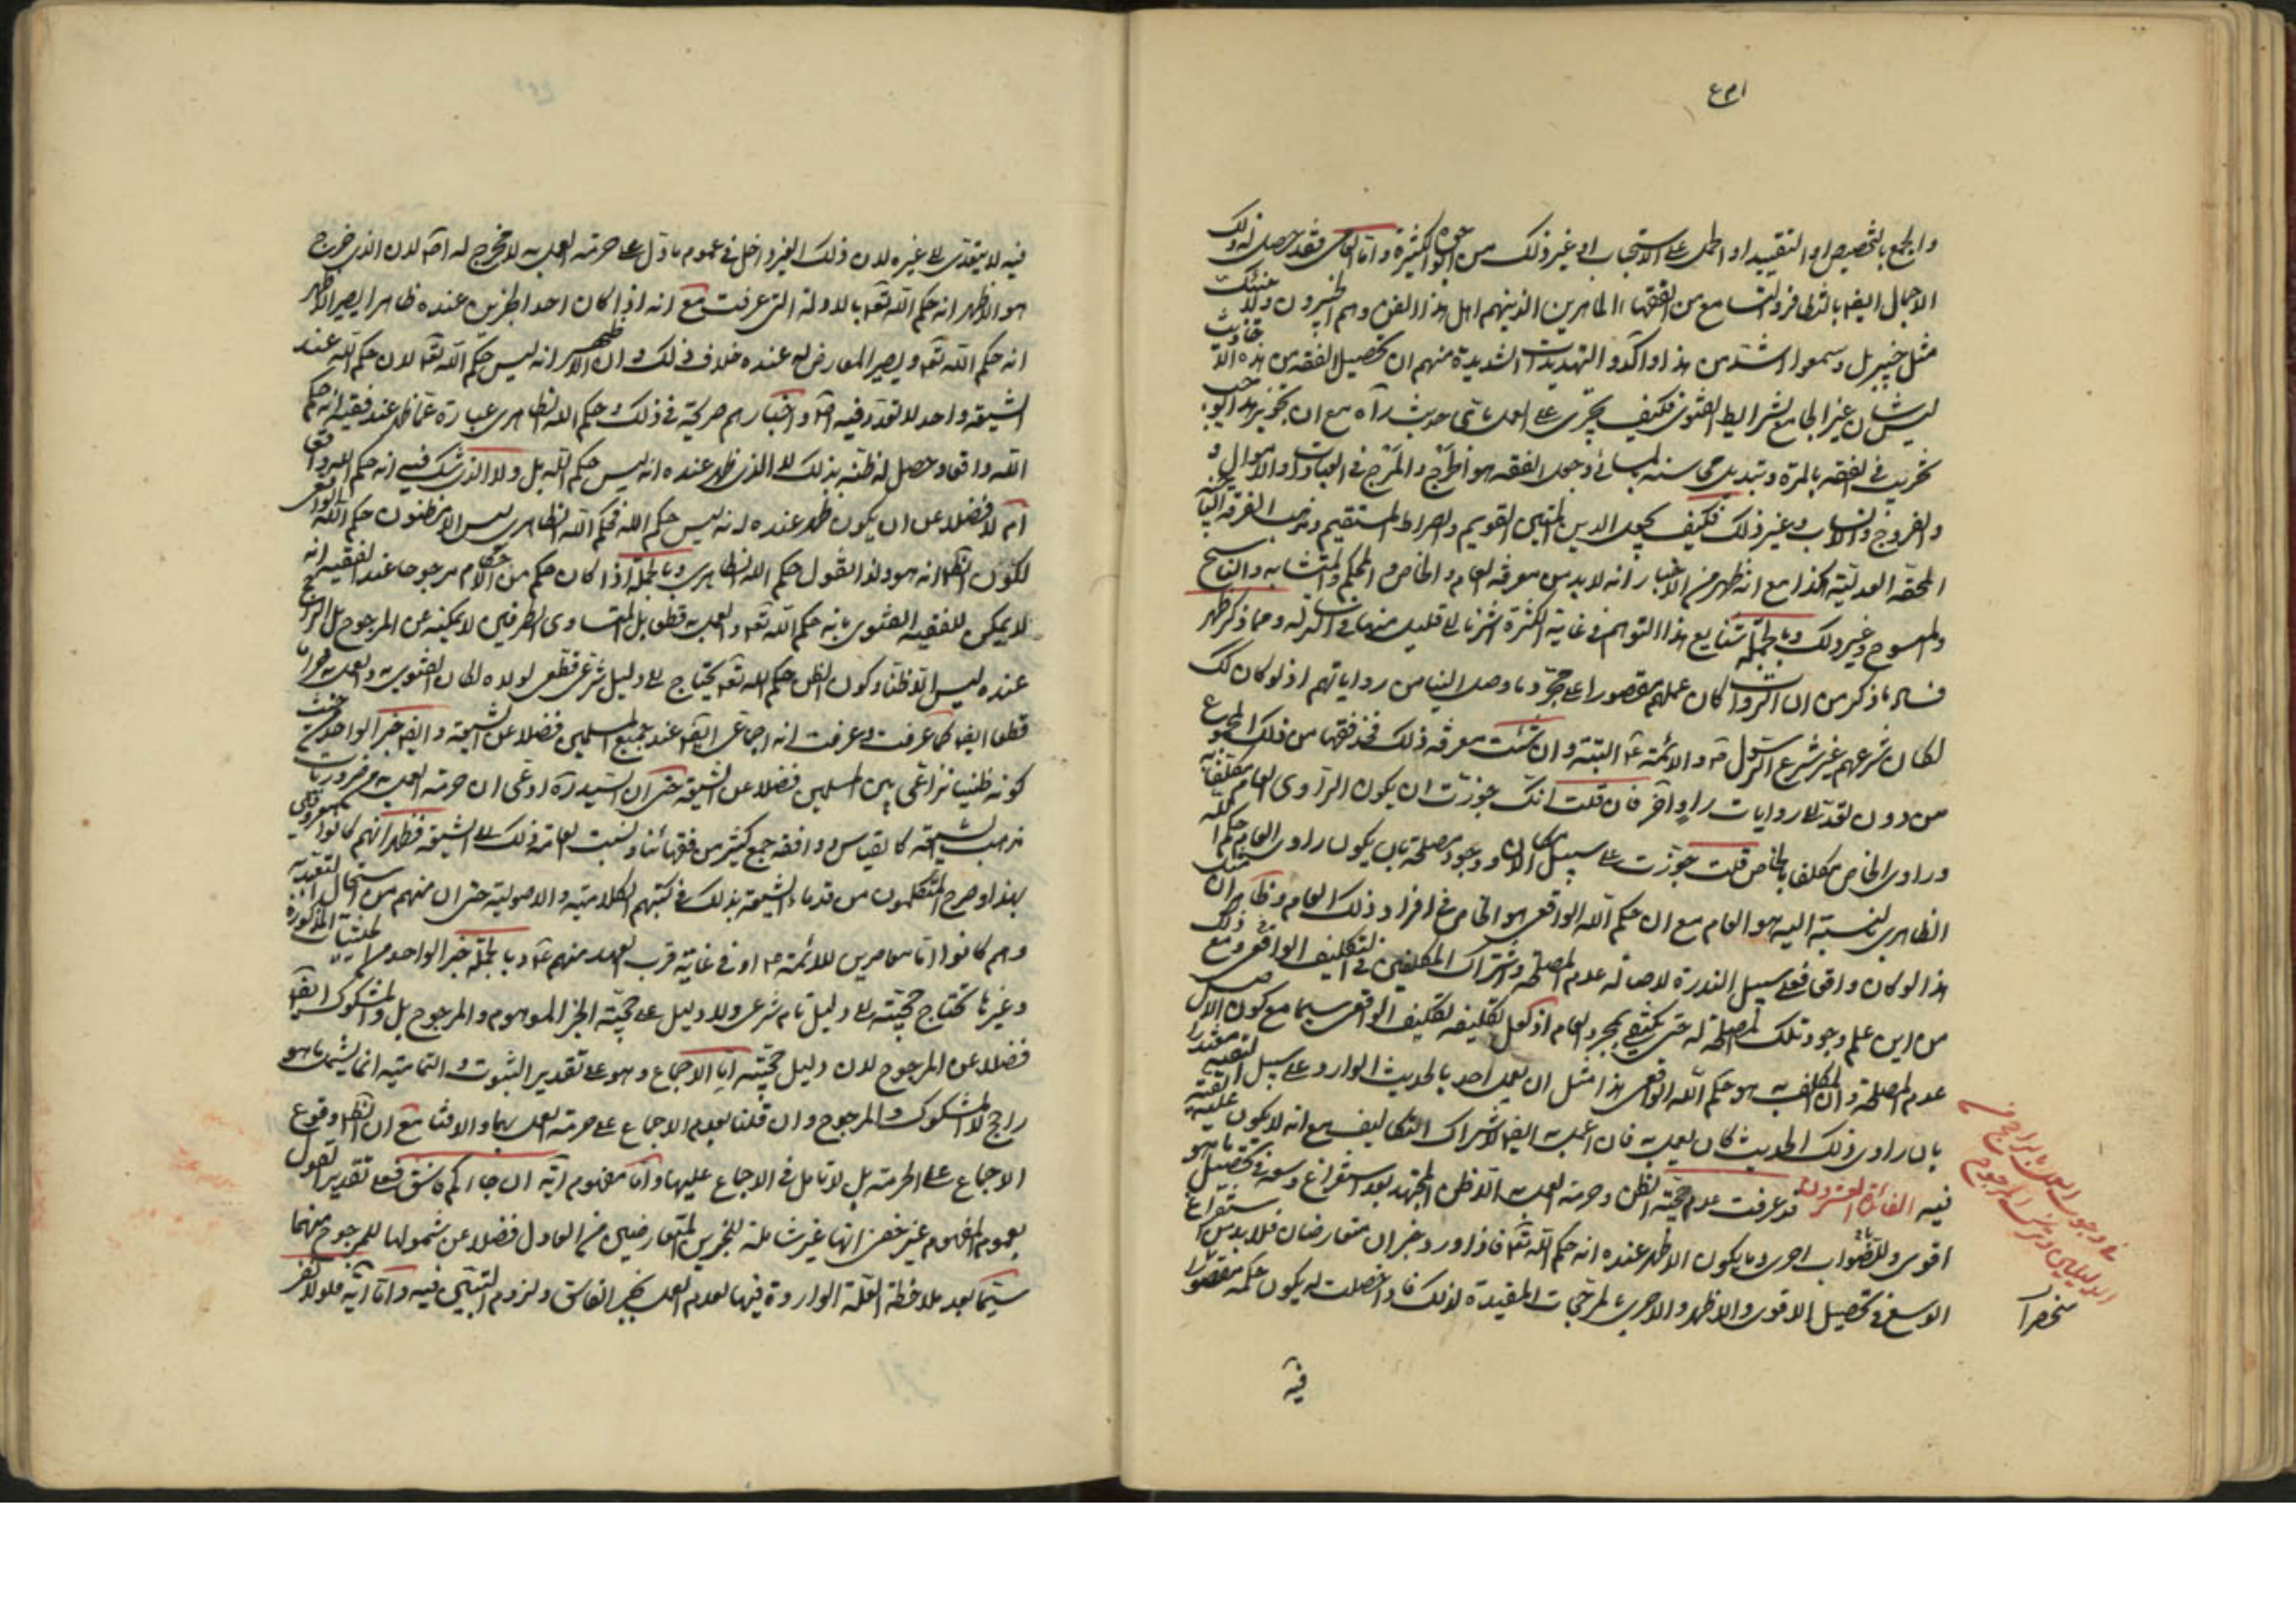 والجمع بالتخصيص او التقييد او الحمل على الاستحباب او غير ذلك من الوجوه الكثيرة واما العامى فقد حصل له ذلك
الاجمال ايضا بالتظافر والتسامع من الفقهاء الماهرين الذينهم اهل هذا الفن وهم الخبيرون ولا ينبئك
مثل خبير بل وسمعوا اشد من هذا واآكد والتهديدات الشديدة منهم ان تحصيل الفقه من هذه الاحاديث
ليس شان غير الجامع لشرايط الفتوى فكيف يجترى على العمل باى حديث رآه مع ان تجويز هذا يوجب
تخريب الفقه بالمرة وتبديل محاسنه بالمسائى وجعل الفقه هو الهرج والمرج فى العبادات والاموال و
والفروج والانساب وغير ذلك فكيف يجعل الدين المتين القويم والصراط المستقيم ومذهب الفرقة الناجية
المحقة العدلية هكذا مع انه ظهر من الاخبار انه لا بد من معرفة العام والخاص والمحكم والمتشابه والناسخ
والمنسوخ وغير ذلك وبالجملة شنايع هذا التوهم فى غاية الكثرة اشرنا الى قليل منها فى الرسالة ومما ذكر ظهر
فساد ما ذكر من ان الرواة كان عملهم مقصورا على مجرد ما وصل الينا من رواياتهم اذ لو كان كك
لكان شرعهم غير شرع الرسول ص والائمة ع البتة وان شئت معرفة ذلك فخذ فقها من ذلك المجموع
من دون تعد الى روايات راو آخر فان قلت انك جوزت ان يكون الراوى العام مكلفا به
وراوى الخاص مكلف بالخاص قلت جوزت على سبيل الامكان ووجود مصلحة بان يكون راوى العام حكم الله
الظاهرى بالنسبة اليه هو العام مع ان حكم الله الواقعى هو الخاص فى افراد ذلك العام وظاهر ان
هذا لو كان واقعا فعلى سبيل الندرة لاصالة عدم المصلحة واشتراك المكلفين فى التكليف الواقعى ومع ذلك
من اين علم وجود تلك المصلحة له حتى يكتفى بمجرد العام اذ لعل تكليفه التكليف الواقعى سيما مع كون الاصل
عدم المصلحة وان المكلف به هو حكم الله الواقعى هذا مثل ان يعمل احد بالحديث الوارد على سبيل التقية معتذرا
بان راوى ذلك الحديث كان يعمل به فان اعمل به ايضا لاشتراك التكاليف مع انه لا يكون عليه التقية
فيه الفائدة العشرون قد عرفت عدم حجية الظن وحرمة العمل به الا ظن المجتهد بعد استفراغ وسعه فى تحصيل ما هو
اقوى وللصواب احرى وما يكون الاظهر عنده انه حكم الله تعالى فاذا ورد خبران متعارضان فلا بد من استفراغ
الوسع فى تحصيل الاقوى والاظهر والاحرى بالمرجحات المفيدة لذلك فاذا حصلت له يكون حكمه مقصورا
فى وجوب العمل بالراجح من
الدليلين وترك المرجوح
منحصرا
فيه
فيه لا يتعدى الى غيره لان ذلك الغير داخل فى عموم ما دل على حرمة العمل به لا مخرج له اصلا لان الذى خرج
هو الاظهر انه حكم الله تعالى بالادلة التى عرفت مع انه اذا كان احد الخبرين عنده ظاهرا يصير الاظهر
انه حكم الله تعالى ويصير المعارض له عنده خلاف ذلك وان الاظهر انه ليس حكم الله تعالى لان حكم الله عند
الشيعة واحد لا تعدد فيه اصلا واخبارهم صريحة فى ذلك وحكم الله الظاهرى عبارة عما ظهر عند فقيه انه حكم
الله واقعا وحصل له ظنه بذلك لا الذى ظهر عنده انه ليس حكم الله بل ولا الذى شك فى انه حكم الله واقعا
ام لا فضلا عن ان يكون ظهر عنده انه ليس حكم الله فحكم الله الظاهرى ليس الا مظنون حكم الله الواقعى
لكون الظاهر انه هو ولذا نقول حكم الله الظاهرى وبالجملة اذا كان حكم من احكام مرجوحا عند الفقيه انه
لا يمكن للفقيه الفتوى بانه حكم الله تعالى والعمل به قطعا بل المتساوى الطرفين لا يمكنه عن المرجوح بل الراجح
عنده ليس الا ظنا وكون الظن حكم الله تعالى يحتاج الى دليل شرعى قطعى لولاه لكان الفتوى به والعمل به حراما
قطعا ايضا كما عرفت وعرفت انه اجماعى ايضا عند جميع المسلمين فضلا عن الشيعة وايضا خبر الواحد من حيث
كونه ظنيا نزاعى بين المسلمين فضلا عن الشيعة حتى ان السيد ره ادعى ان حرمة العمل به من ضروريات
مذهب الشيعة كالقياس ووافقه جمع كثير من فقهائنا ونسبت العامة ذلك الى الشيعة فظهر انهم كانوا معروفين
بهذا وصرح المتكلمون من قدماء الشيعة بذلك فى كتبهم الكلامية والاصولية حتى ان منهم من استحال التعبد به
وهم كانوا اما معاصرين للائمة ع او فى غاية قرب العهد منهم ع وبالجملة خبر الواحد للحيثيات المذكورة
وغيرها تحتاج حجيته الى دليل تام شرعى ولا دليل على حجية الخبر الموهوم والمرجوح بل والمشكوك ايضا
فضلا عن المرجوح لان دليل حجيته اما الاجماع وهو على تقدير الثبوت والتمامية انما يشمل ما هو
راجح لا المشكوك والمرجوح وان قلنا بعدم الاجماع على حرمة العمل بهما والافتاء مع ان الظاهر وقوع
الاجماع على الحرمة بل لا تامل فى الاجماع عليها واما مفهوم آية ان جاءكم فاسق فعلى تقدير القول
بعموم المفهوم غير خفى انها غير شاملة للخبرين المتعارضين من العادل فضلا عن شمولها للمرجوح منهما
سيما بعد ملاحظة العلة الواردة فيها لعدم العمل بخبر الفاسق ولزوم التبين فيه واما آية فلولا نفر